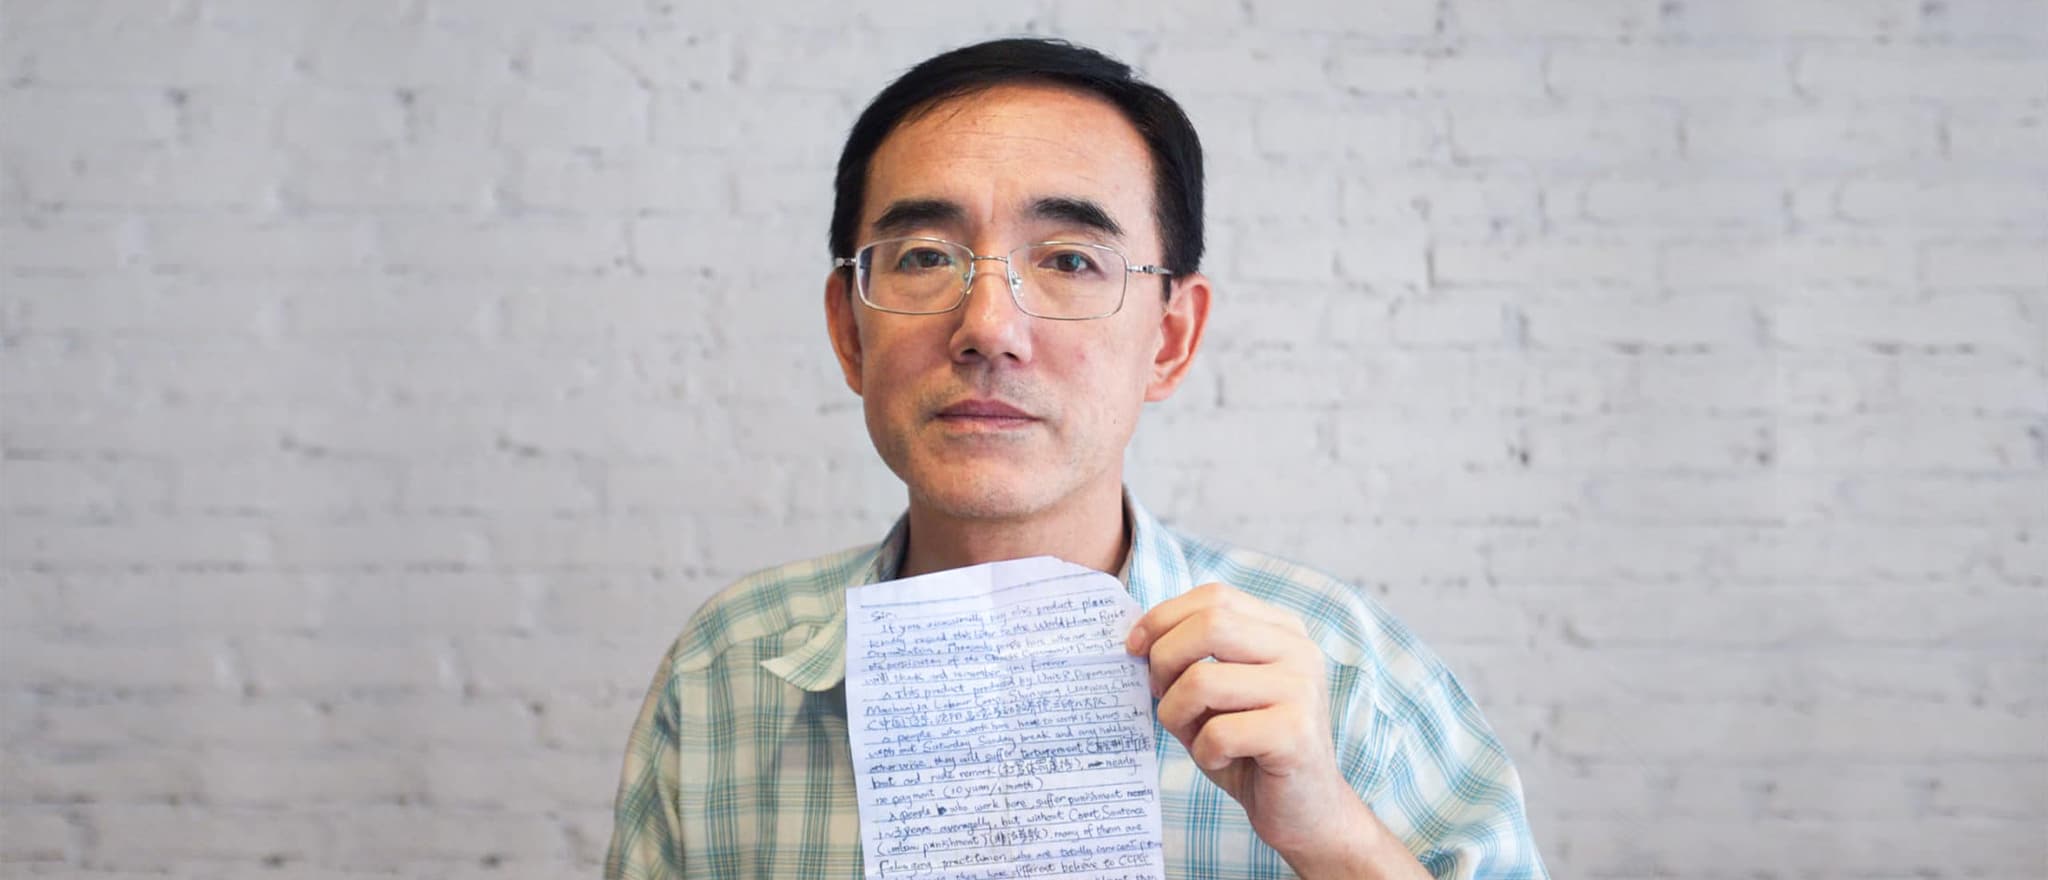 Sir:
If you occassionally buy this product please
kindly resend this letter to the World Human Right
Organization. Thousands people here who are under
the persicution of the Chinese Communist Party Gover
will thank and remember you forever.
△ This product produced by Unit 8, Department 2
Masanjia Labour Camp, Shenyang, Liaoning, China
(中国,辽宁,沈阳,马三家劳动教养二所八大队)
△ people who work here have to work 15 hours a day
with out Saturday Sunday break and any holidays
otherwise, they will suffer torturement (酷刑
beat and rude remark (打骂体罚虐待), nearly
no payment (10 yuan/1 month)
△ people who work here, suffer punishment nearly
1~3 years averagelly, but without Court Sentence
(unlaw punishment) (非法劳教), many of them are
Falun gong practitioner who are totally innocent
they have different believe to CCPG
than